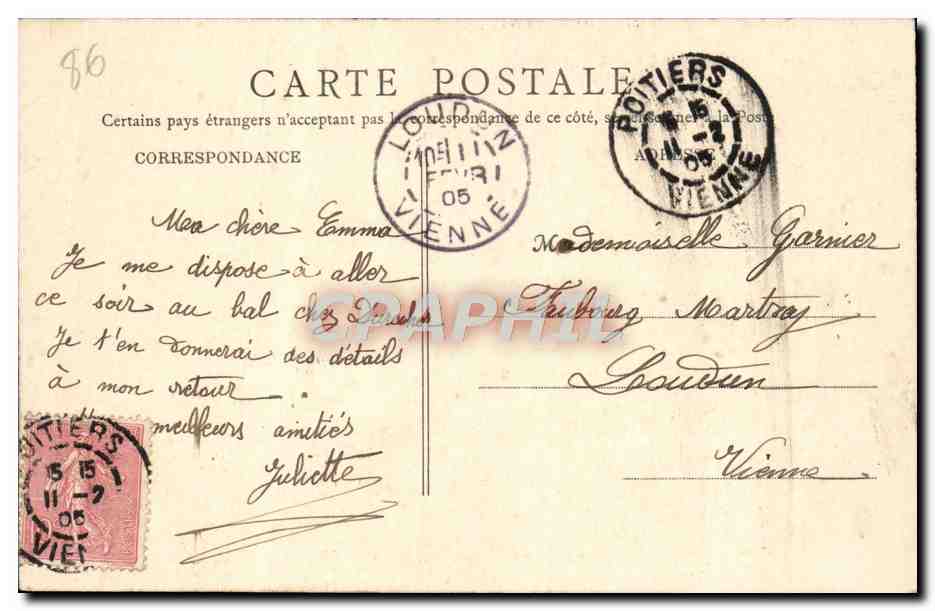 86
CARTE POSTALE
Certains pays étrangers n'acceptant pas la correspondance de ce côté, se renseigner à la Poste
CORRESPONDANCE
ADRESSE
LOUDUN
11
FEVR
05
VIENNE
POITIERS
15
11 -2
05
VIENNE
Ma chère Emma
Je me dispose à aller
ce soir au bal chez
Je t'en donnerai des détails
à mon retour
meilleurs amitiés
Juliette
Mademoiselle Garnier
Faubourg Martray
Loudun
Vienne
CPAPHIL
POITIERS
15 15
11 -2
05
VIEN